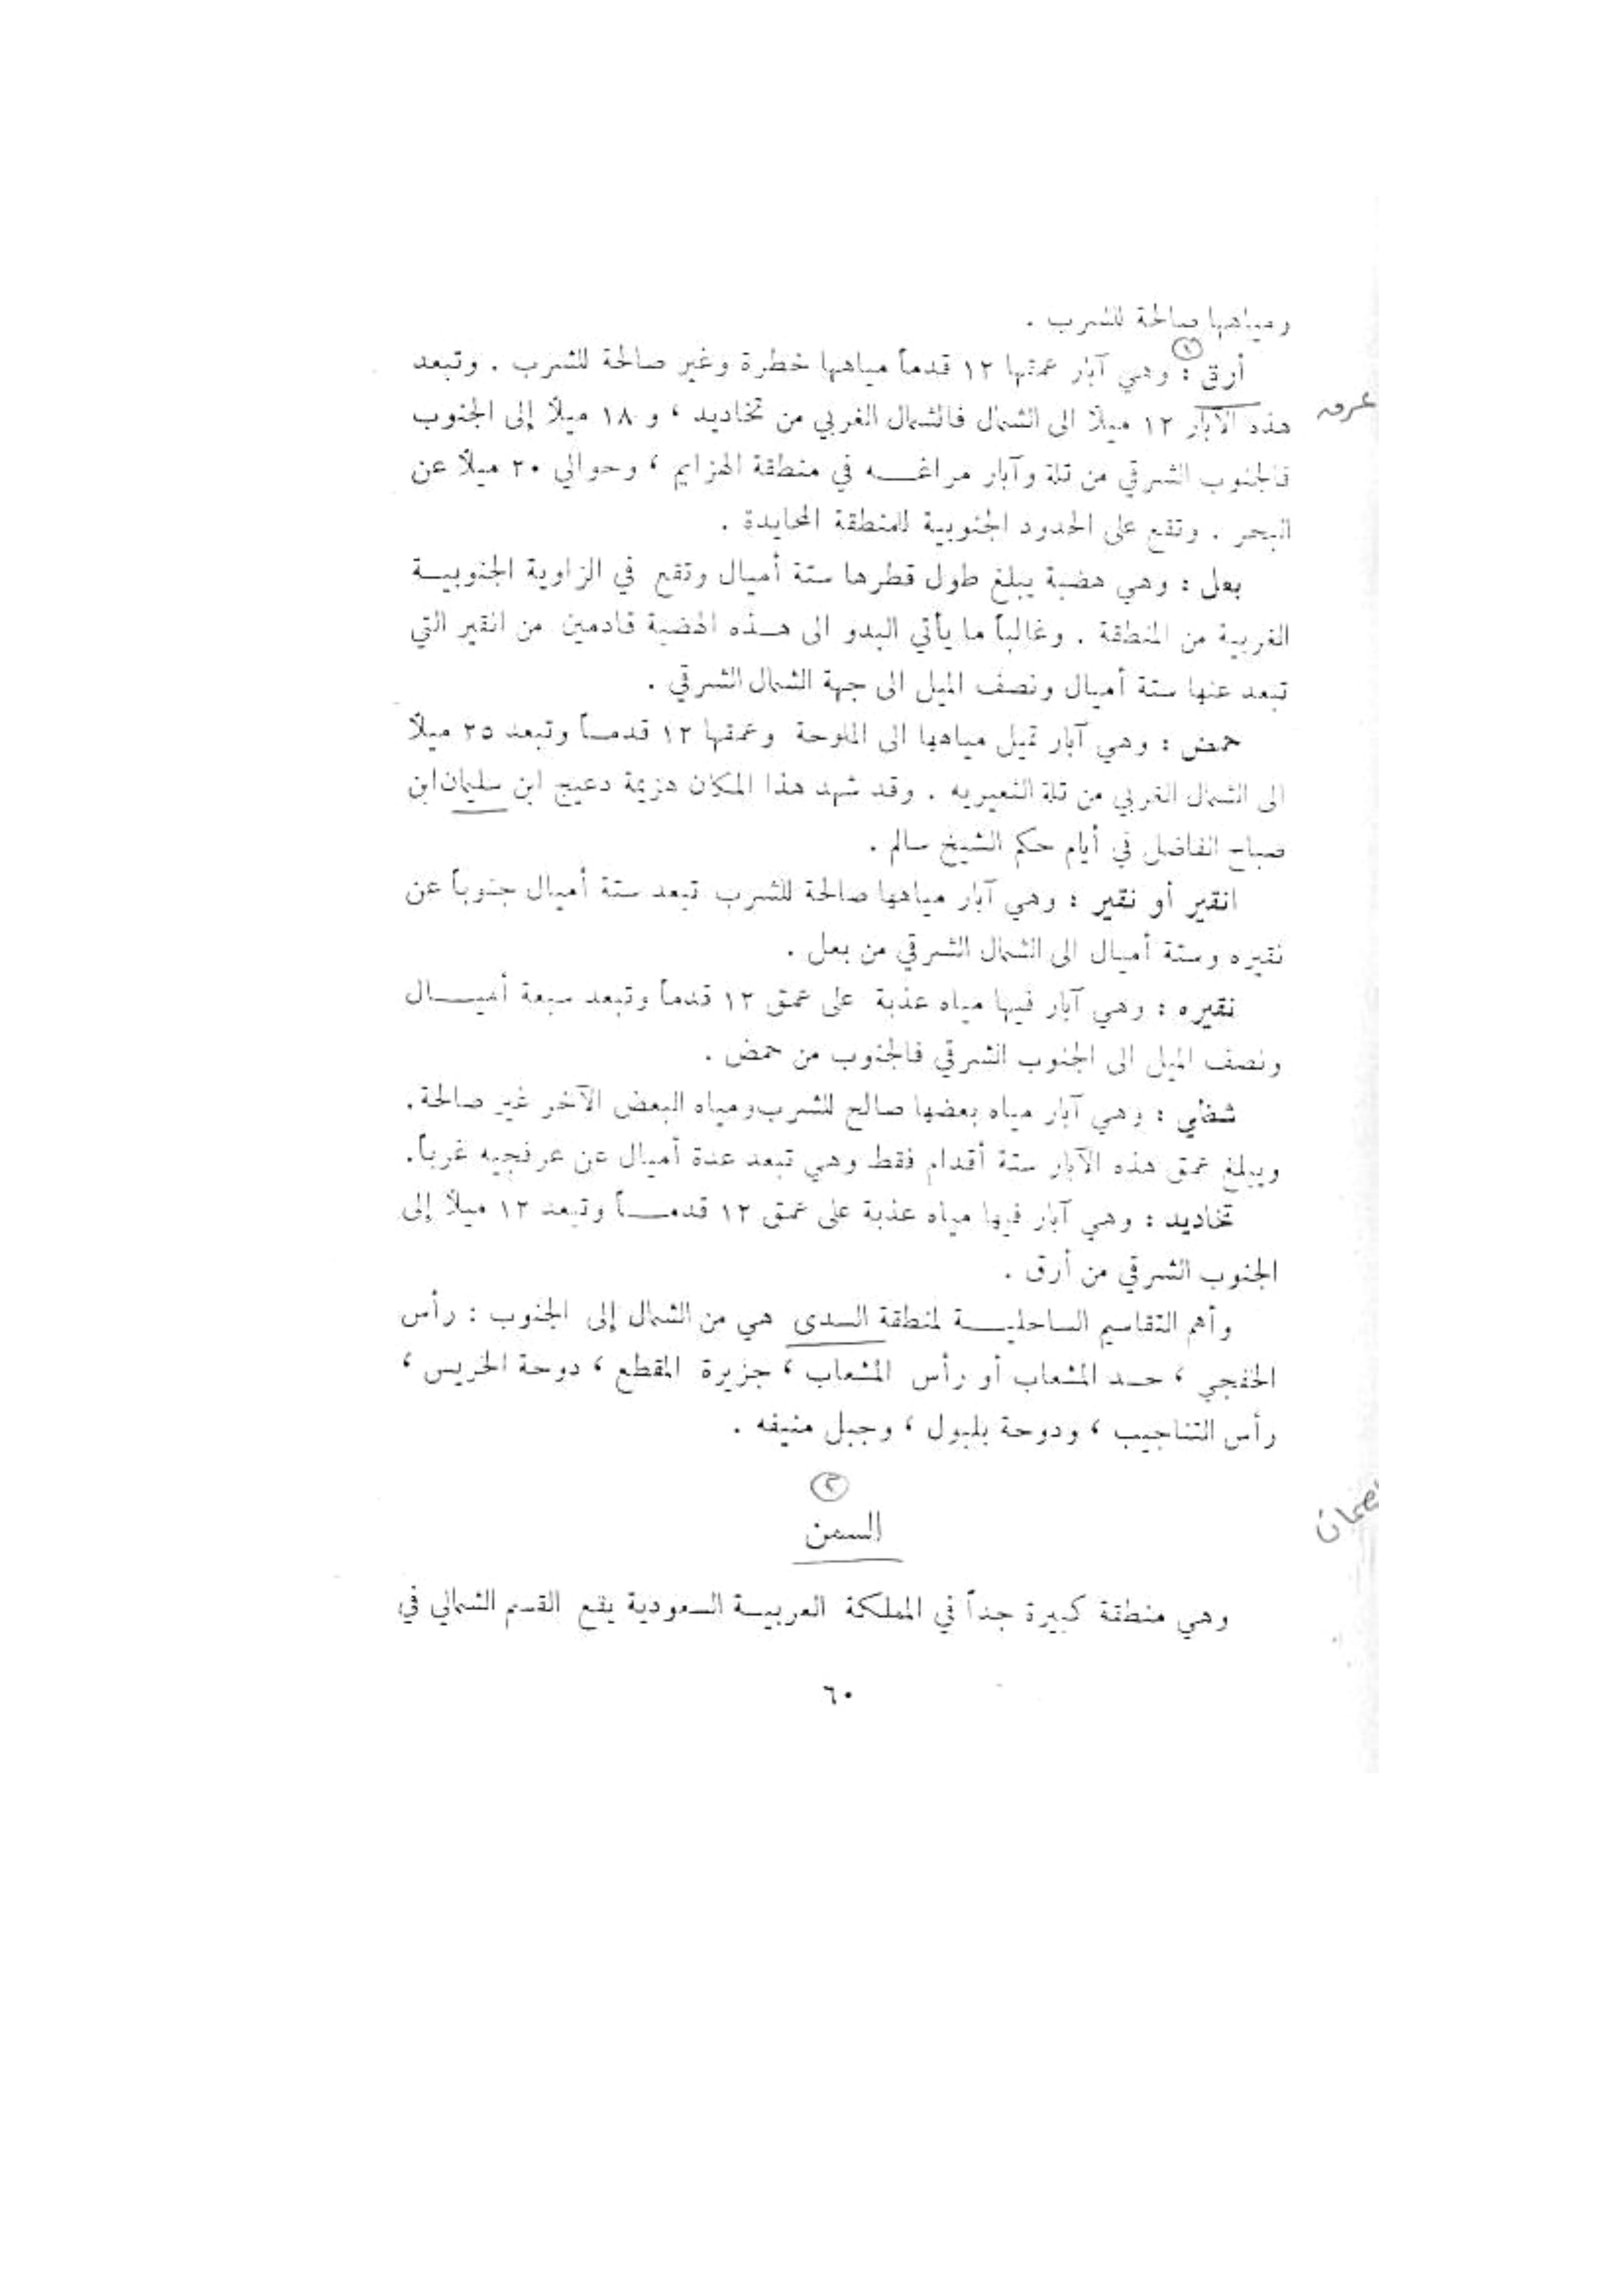 ومياهها صالحة للشرب .
أرق : وهي آبار عمقها ١٢ قدماً مياهها خطرة وغير صالحة للشرب . وتبعد
هذه الآبار ١٢ ميلاً الى الشمال فالشمال الغربي من تخاديد ، و ١٨ ميلاً إلى الجنوب
عرق
فالجنوب الشرقي من تلة وآبار مراغه في منطقة الهزايم ، وحوالي ٢٠ ميلاً عن
البحر . وتقع على الحدود الجنوبية للمنطقة المحايدة .
بعل : وهي هضبة يبلغ طول قطرها ستة أميال وتقع في الزاوية الجنوبية
الغربية من المنطقة . وغالباً ما يأتي البدو الى هذه الهضبة قادمين من انقير التي
تبعد عنها ستة أميال ونصف الميل الى جهة الشمال الشرقي .
حمض : وهي آبار تميل مياهها الى الملوحة وعمقها ١٢ قدماً وتبعد ٢٥ ميلاً
الى الشمال الغربي من تلة النعيريه . وقد شهد هذا المكان هزيمة دعيج ابن سليمان ابن
صباح الفاضل في أيام حكم الشيخ سالم .
انقير أو نقير : وهي آبار مياهها صالحة للشرب تبعد ستة أميال جنوباً عن
نقيره وستة أميال الى الشمال الشرقي من بعل .
نقيره : وهي آبار فيها مياه عذبة على عمق ١٢ قدماً وتبعد سبعة أميال
ونصف الميل الى الجنوب الشرقي فالجنوب من حمض .
شظلي : وهي آبار مياه بعضها صالح للشرب ومياه البعض الآخر غير صالحة .
ويبلغ عمق هذه الآبار ستة أقدام فقط وهي تبعد عدة أميال عن عرفجيه غرباً .
تخاديد : وهي آبار فيها مياه عذبة على عمق ١٢ قدماً وتبعد ١٢ ميلاً إلى
الجنوب الشرقي من أرق .
وأهم التقاسيم الساحلية لمنطقة السدى هي من الشمال إلى الجنوب : رأس
الخفجي ، حد المشعاب أو رأس المشعاب ، جزيرة المقطع ، دوحة الخريس ،
رأس التناجيب ، ودوحة بلبول ، وجبل منيفه .
٢
السمن
صمان
وهي منطقة كبيرة جداً في المملكة العربية السعودية يقع القسم الشمالي في
٦٠